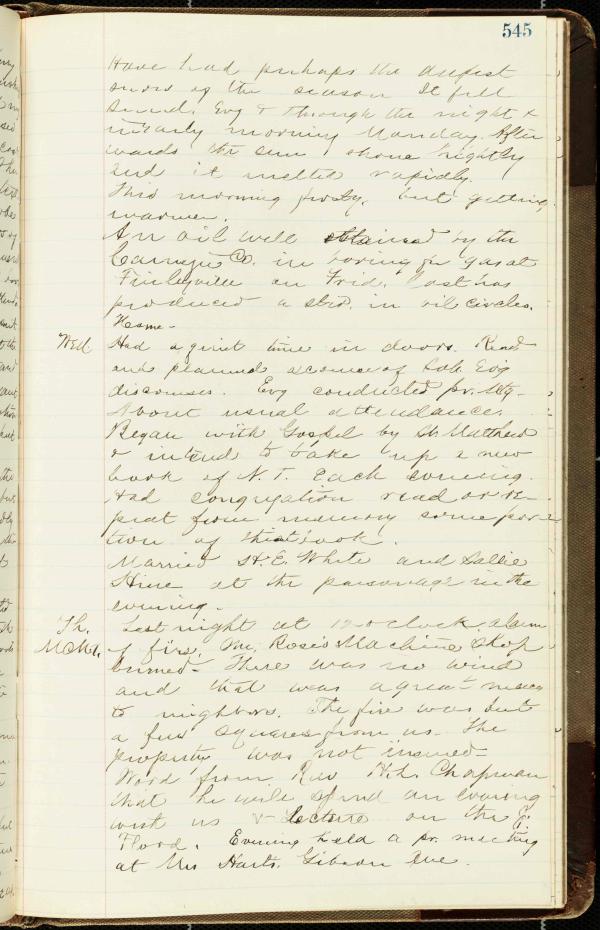 545
Have had perhaps the deepest
snow of the season It fell
Sund. Evg & through the night &
in early morning Monday. After
wards the sun shone brightly
and it melted rapidly.
This morning frosty, but getting
warmer.
An oil well obtained by the
Carnegie Co. in boring for gas at
Finleyville on Frid. last has
produced a in oil circles.
Home-
Wed Had a quiet time in doors. Read
and planned a course of Sab. Evg
discourses. Evg conducted pr. Mtg-
About usual attendance.
Began with Gospel by St. Matthew
& intend to take up a new
book of N. T. Each evening.
Had congregation read or re-
peat from memory some por-
tion of this book.
Married H. E. White and Sallie
Hine at the parsonage in the
evening.
Th. Last night at 12 o'clock alarm
of fire. Mr. Rose's Machine Shop
burned- There was no wind
and that was a great mercy
to neighbors. The fire was but
a few squares from us. The
property was not insured-
Word from Rev H. L. Chapman
that he will spend an evening
with us & lecture on the J.
Flood. Evening held a pr. meeting
at Mrs Harts. Gibson Ave.